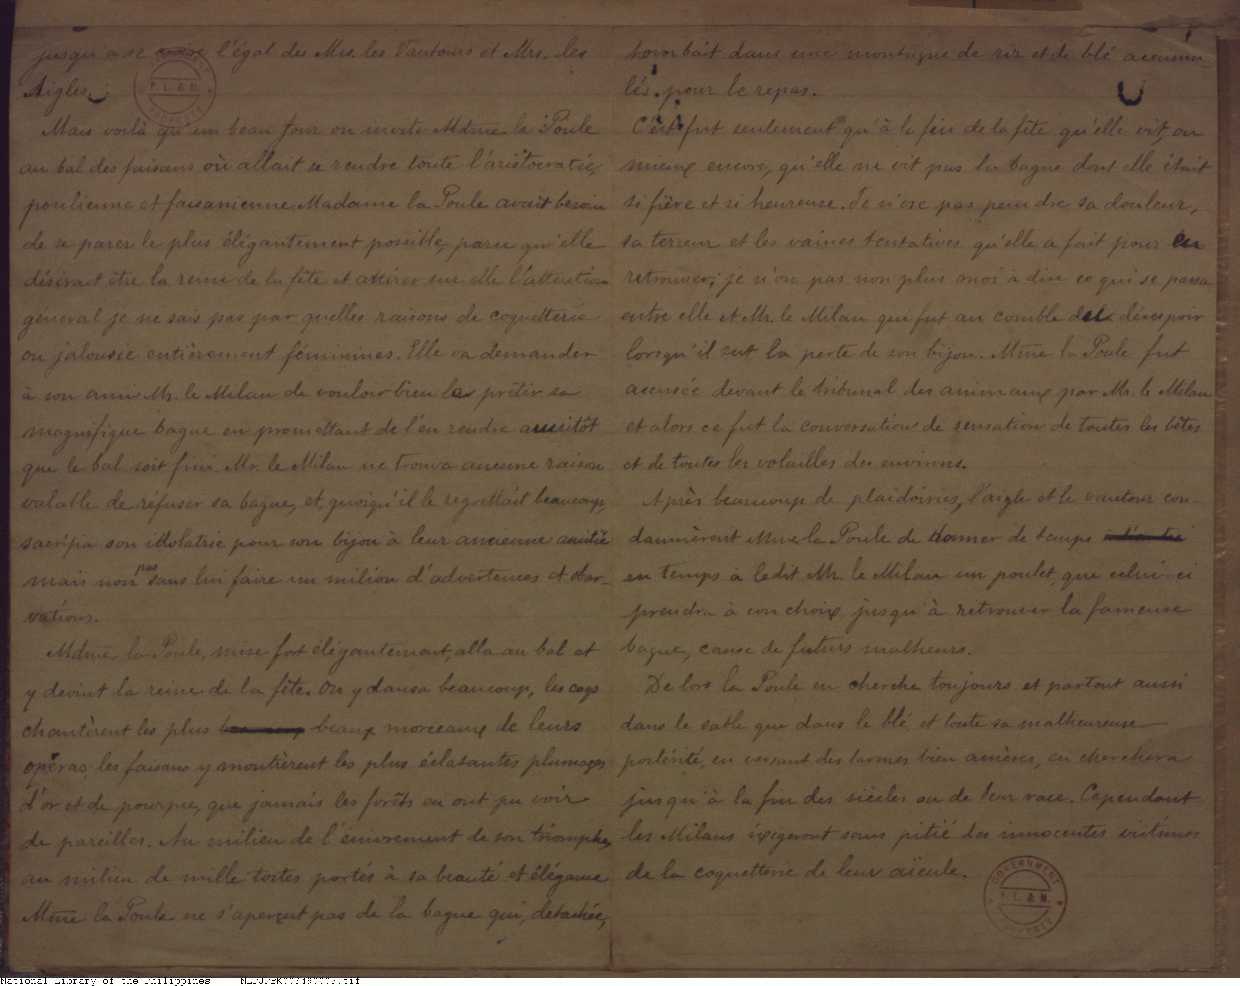 jusqu'a se croire l'égal des Mrs. les Vautours et Mrs. les
Aigles.
Mais voilà qu'un beau jour on invite Mdme la Poule
au bal des faisans où allait se rendre toute l'aristocratie
poulienne et faisanienne. Madame la Poule avait besoin
de se parer le plus élégantement possible, parce qu'elle
désirait être la reine de la fête et attirer sur elle l'attention
général je ne sais pas par quelles raisons de coquetterie
ou jalousie entièrement féminines. Elle va demander
à son ami Mr. le Milan de vouloir bien les prêter sa
magnifique bague en promettant de l'en rendre aussitôt
que le bal soit fini. Mr. le Milan ne trouva aucune raison
valable de refuser sa bague, et, quoiqu'il le regrettait beaucoup,
sacrifia son idolatrie pour son bijou à leur ancienne amitié
mais non pas sans lui faire un milion d'advertences et obser-
vations.
Mdme la Poule, mise fort élégantement, alla au bal et
y devint la reine de la fête. On y dansa beaucoup, les coqs
chantèrent les plus beaux morceaux de leurs
opéras, les faisans y montièrent les plus éclatantes plumages
d'or et de pourpre, que jamais les forêts en ont pu voir
de pareilles. Au milieu de l'enivrement de son triomphe,
au milieu de mille tostes portés à sa beauté et élégance
Mme la Poule ne s'aperçut pas de la bague qui, detachée,
tombait dans une montagne de riz et de blé accumu
lés pour le repas.
C'est fut seulement qu'à la fin de la fête qu'elle vit, ou
mieux encore, qu'elle ne vit pas la bague dont elle était
si fière et si heureuse. Je n'ose pas peindre sa douleur,
sa terreur et les vaines tentatives qu'elle a fait pour en
retrouver; je n'ose pas non plus moi à dire ce qui se passa
entre elle et Mr. le Milan qui fut au comble de désespoir
lorsqu'il sut la perte de son bijou. Mme la Poule fut
accusée devant le tribunal des animaux par Mr. le Milan
et alors ce fut la conversation de sensation de toutes les bêtes
et de toutes les volailles des environs.
Après beaucoup de plaidoiries, l'aigle et le vautour con-
damnèrent Mme la Poule de donner de temps
en temps à ledit Mr. le Milan un poulet, que celui-ci
prendra à son choix jusqu'à retrouver la fameuse
bague, cause de futurs malheurs.
De lors la Poule en cherche toujours et partout aussi
dans le sable que dans le blé et toute sa malheureuse
postérité, en versant des larmes bien amères, en cherchera
jusqu'à la fin des siècles ou de leur race. Cependant
les Milans exigeront sans pitié des innocentes victimes
de la coquetterie de leur aïeule.
GOVERNMENT
P. L. & M.
PROPERTY
GOVERNMENT
P. L. & M.
PROPERTY
National Library of the Philippines